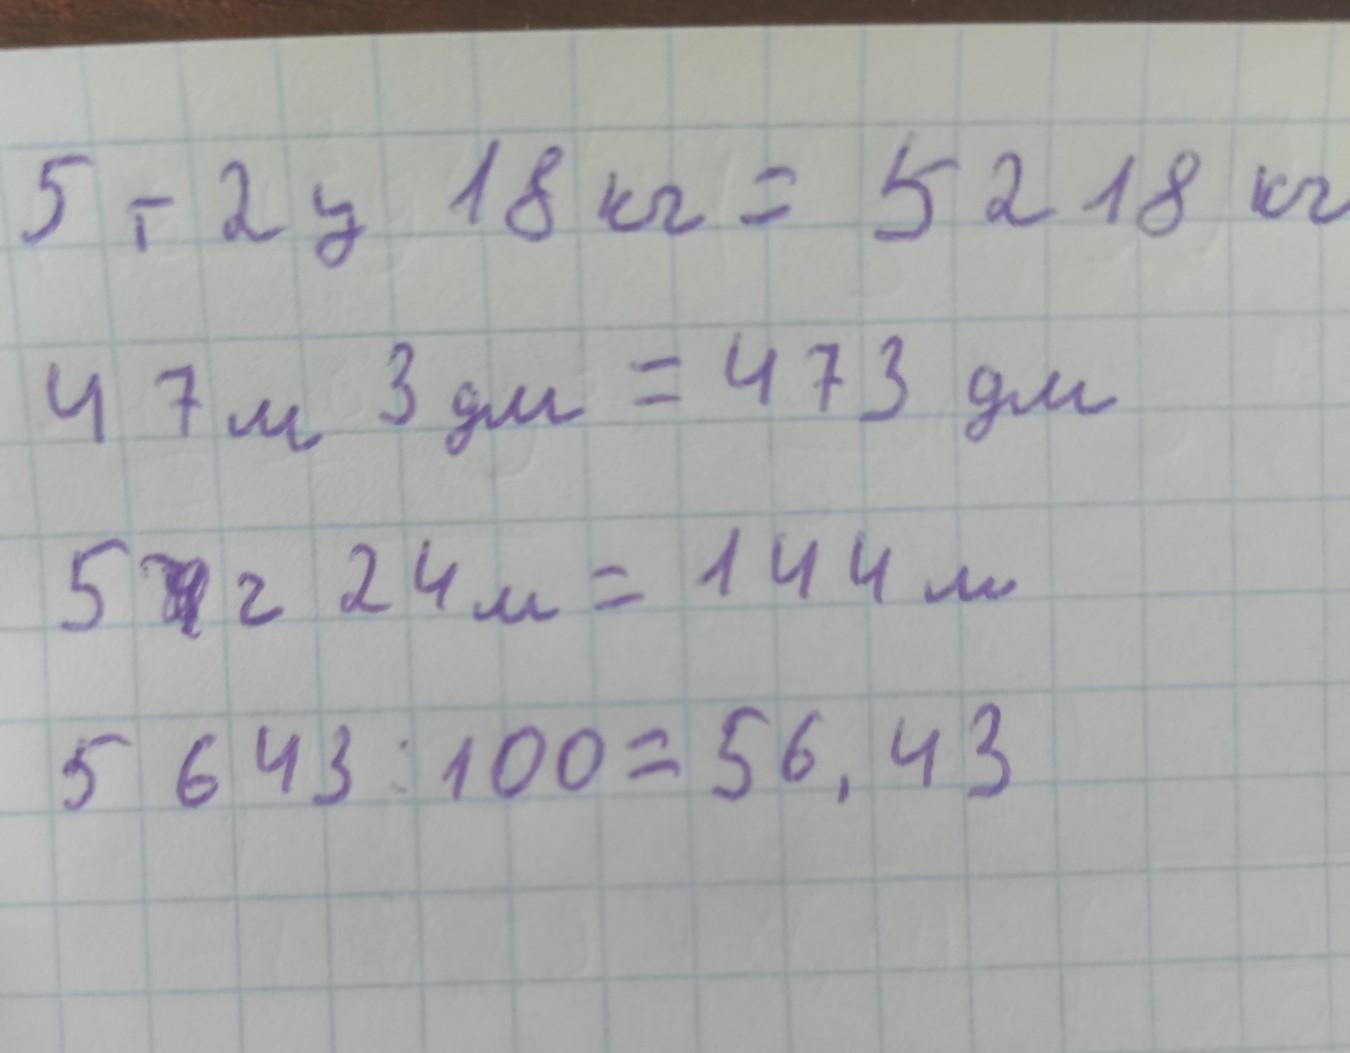 5 т 2 ц 18 кг = 5218 кг
47 м 3 дм = 473 дм
5 г 24 м = 144 м
5643 : 100 = 56,43